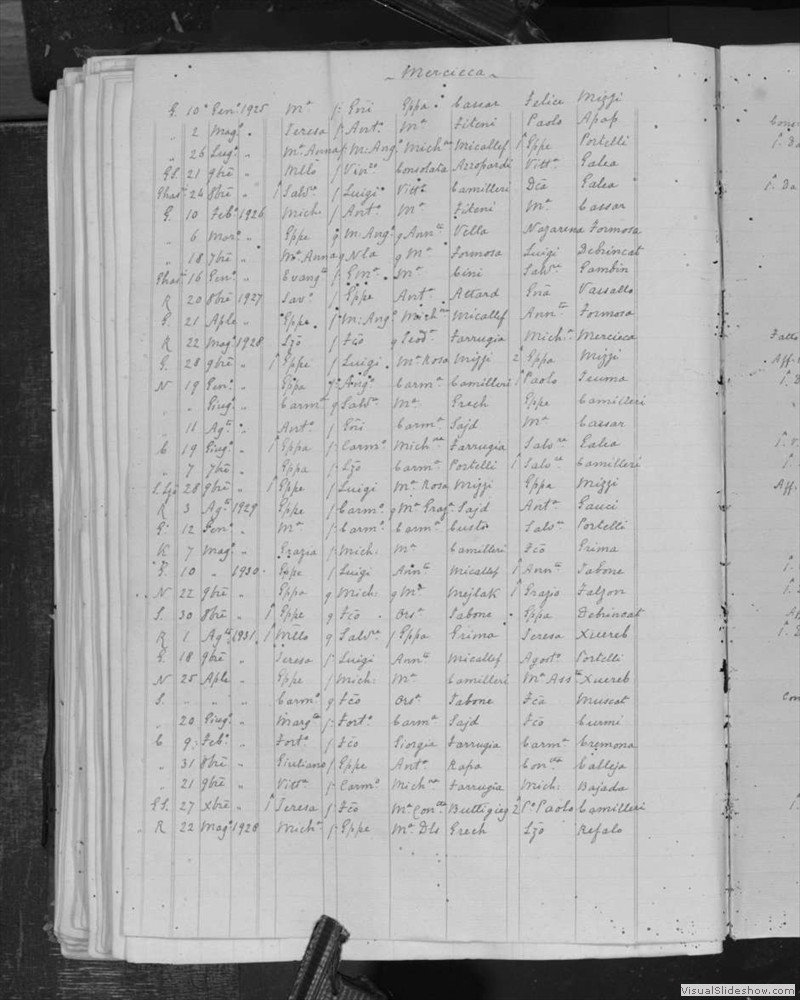 Mercieca
G. 10 Gen.º 1925 Mª f. Gñi Eppa Cassar Felice Mizzi
„ 2 Magº „ Teresa f. Antº Mª Fiteni Paolo Apap
„ 26 Lugº „ Mª Anna f. M: Angº Michna Micallef 1 Eppe Portelli
GS. 21 9bre „ Mllo f Vinzo Consolata Azzopardi Vittª Galea
Ghas. 24 8bre „ 1 Salvr f Luigi Vittª Camilleri Dca Galea
G. 10 Febº 1926 Mich: f Antº Mª Fiteni Mª Cassar
„ 6 Marº „ Eppe g M: Angº g Annta Vella Nazarena Formosa
„ 18 7bre „ Mª Anna g Nla g Mª Formosa Luigi Debrincat
Ghas. 16 Genº „ Evangta f Emª Mª Cini Salvª Gambin
R 20 8bre 1927 Savº f Eppe Antª Attard Gña Vassallo
G. 21 Aple „ Eppe f M: Angº Michna Micallef Annta Formosa
R 22 Magº 1928 Lzo f Fco g Teodª Farrugia Michª Mercieca
G. 28 9bre „ 1 Eppe f Luigi Mª Rosa Mizzi 2 Eppa Mizzi
N 19 Genº „ Eppa f Angº Carmª Camilleri 1 Paolo Teuma
„ „ Giugº „ Carmª g Salvr Mª Grech Eppe Camilleri
„ 11 Agto „ Antº f Gñi Carmª Sajd Mª Cassar
C 19 Giugº „ 1 Eppa f Carmº Michna Farrugia Salvre Galea
„ 7 7bre „ Eppa f Lzo Carmª Portelli 1 Salvre Camilleri
S. Lzo 28 9bre „ 1 Eppe f Luigi Mª Rosa Mizzi Eppa Mizzi
R 3 Agto 1929 Eppe f Carmº g Mª Graza Sajd Antª Gauci
G. 12 Genº „ Mª f Carmº Carmª Custo Salvre Portelli
K 7 Magº „ Grazia f Mich: Mª Camilleri Fco Grima
G. 10 „ 1930 Eppe f Luigi Annta Micallef 1 Annta Tabone
N 22 9bre „ Eppa g Mich: g Mª Mejlak 1 Grazio Falzon
S. 30 8bre „ 1 Eppe g Fco Orsª Tabone Eppa Debrincat
R 1 Agto 1931 1 Mllo g Salvr f Eppa Grima Teresa Xuereb
G. 18 9bre „ Teresa f Luigi Annta Micallef Agostº Portelli
N 25 Aple „ Eppe f Mich: Mª Camilleri Mª Assta Xuereb
S. „ „ „ Carmº g Fco Orsª Tabone Fca Muscat
„ 20 Giugº „ Margta f Fortº Carmª Sajd Fco Curmi
C 9 Febº „ Fortº f Fco Giorgia Farrugia Carmª Cremona
„ 31 8bre „ Giuliano f Eppe Antª Rapa Concta Calleja
„ 21 9bre „ Vittª f Carmº Michna Farrugia Mich: Bajada
GS. 27 Xbre „ 1 Teresa f Fco Mª Concta Buttigieg 2 Pº Paolo Camilleri
R 22 Magº 1928 Michª f Eppe Mª Dls Grech Lzo Refalo
VisualSlideshow.com